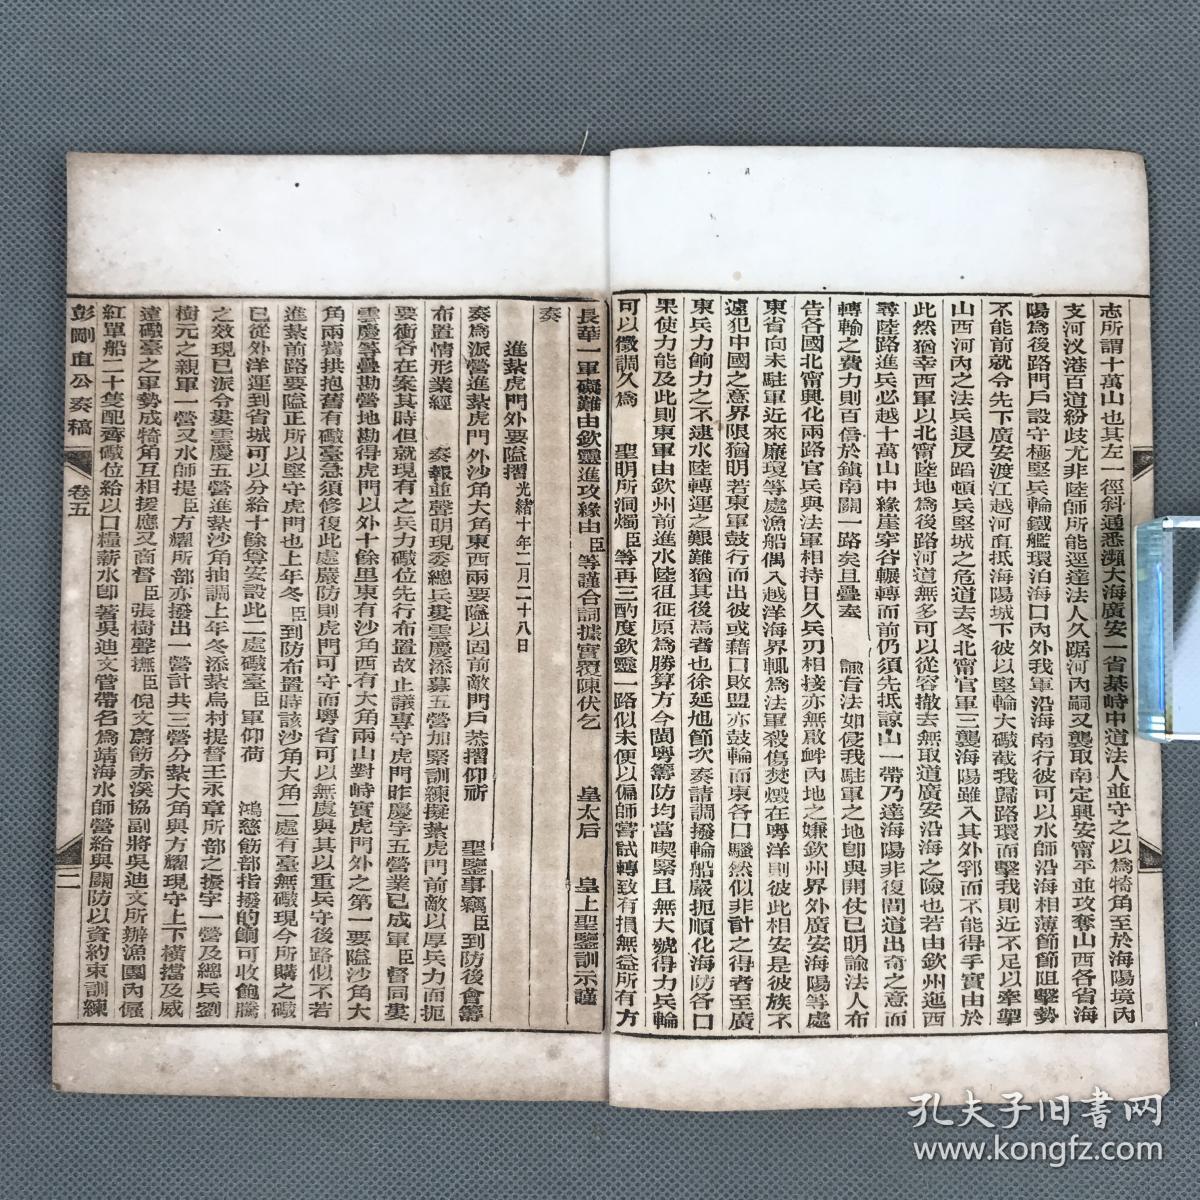 志所謂十萬山也其左一徑斜通悉瀕大海廣安一省綦峙中道法人並守之以爲犄角至於海陽境內
支河汊港百道紛歧尤非陸師所能逕達法人久踞河內嗣又襲取南定興安甯平並攻奪山西各省海
陽爲後路門戶設守極堅兵輪鐵艦環泊海口內外我軍沿海南行彼可以水師沿海相薄節節阻擊勢
不能前就令先下廣安渡江越河直抵海陽城下彼以堅輪大礮截我歸路環而擊我則近不足以牽掣
山西河內之法兵退反蹈頓兵堅城之危道去冬北甯官軍三襲海陽雖入其外郛而不能得手實由於
此然猶幸西軍以北甯陸地爲後路河道無多可以從容撤去無取道廣安沿海之險也若由欽州迤西
尋陸路進兵必越十萬山中緣崖穿谷輾轉而前仍須先抵諒山一帶乃達海陽非復間道出奇之意而
轉輸之費力則百倍於鎮南關一路矣且疊奉　諭旨法如侵我駐軍之地卽與開仗已明諭法人布
告各國北甯興化兩路官兵與法軍相持日久兵刃相接亦無啟衅內地之嫌欽州界外廣安海陽等處
東省向未駐軍近來廉瓊等處漁船偶入越洋海界輒爲法軍殺傷焚燬在粵洋則彼此相安是彼族不
遽犯中國之意界限猶明若東軍鼓行而出彼或藉口敗盟亦鼓輪而東各口騷然似非計之得者至廣
東兵力餉力之不逮水陸轉運之艱難猶其後焉者也徐延旭節次奏請調撥輪船嚴扼順化海防各口
果使力能及此則東軍由欽州前進水陸徂征原爲勝算方今閩粵籌防均當喫緊且無大號得力兵輪
可以徵調久爲　聖明所洞燭臣等再三酌度欽靈一路似未便以偏師嘗試轉致有損無益所有方
長華一軍礙難由欽靈進攻緣由臣等謹合詞據實覆陳伏乞　皇太后　皇上聖鑒訓示謹
奏
進紮虎門外要隘摺光緒十年二月二十八日
奏爲派營進紮虎門外沙角大角東西兩要隘以固前敵門戶恭摺仰祈　聖鑒事竊臣到防後會籌
布置情形業經　奏報並聲明現委總兵婁雲慶添募五營加緊訓練擬紮虎門前敵以厚兵力而扼
要衝各在案其時但就現有之兵力礮位先行布置故止議專守虎門昨慶字五營業已成軍臣督同婁
雲慶等疊勘營地勘得虎門以外十餘里東有沙角西有大角兩山對峙實虎門外之第一要隘沙角大
角兩臂拱抱舊有礮臺急須修復此處嚴防則虎門可守而粵省可以無虞與其以重兵守後路似不若
進紮前路要隘正所以堅守虎門也上年冬臣到防布置時該沙角大角二處有臺無礮現今所購之礮
已從外洋運到省城可以分給十餘尊安設此二處礮臺臣軍仰荷　鴻慈飭部指撥的餉可收飽騰
之效現已派令婁雲慶五營進紮沙角抽調上年冬添紮烏村提督王永章所部之振字一營及總兵劉
樹元之親軍一營又水師提臣方耀所部亦撥出一營計共三營分紮大角與方耀現守上下橫擋及威
遠礮臺之軍勢成犄角互相援應又商督臣張樹聲撫臣倪文蔚飭赤溪協副將吳迪文所辦漁團內僱
紅單船二十隻配齊礮位給以口糧薪水卽著吳迪文管帶名爲靖海水師營給與關防以資約束訓練
彭剛直公奏稿　卷五　二
孔夫子旧书网
www.kongfz.com